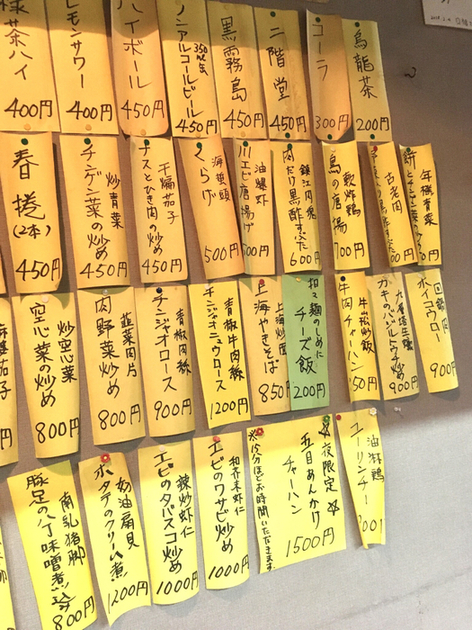 様茶ハイ
400円
レモンサワー
400円
ハイボール
450円
ノンアルコールビール
350ml缶
450円
黒霧島
450円
二階堂
450円
コーラ
300円
烏龍茶
200円
春捲(2本)
450円
炒青菜
チンゲン菜の炒め
450円
干煸茄子
ナスとひき肉の炒め
450円
海蜇頭
くらげ
500円
油爆虾
川エビ唐揚げ
500円
鎮江肉塊
肉だけ黒酢すぶた
600円
軟炸鶏
鳥の唐揚
700円
古老肉
00円
年糕青菜
餅とチンゲン菜の炒め
炒空心菜
空心菜の炒め
800円
韮菜肉片
肉野菜炒め
800円
青椒肉絲
チンジャオロース
900円
青椒牛肉絲
チンジャオニュウロース
1200円
上海炒面
上海やきそば
850
担々麺のしめに
チーズ飯
200円
牛崧炒飯
牛肉チャーハン
50円
カキのハジルトウチ炒め
900円
回鍋肉
ホイコウロー
900円
南乳猪脚
豚足の八丁味噌煮込み
800円
奶油扇貝
ホタテのクリーム煮
1200円
辣炒虾仁
エビのタバスコ炒め
1000円
和芥末虾仁
エビのワサビ炒め
1000円
☆夜限定☆
五目あんかけ
チャーハン
1500円
※15分ほどお時間いただきます
油淋鶏
ユーリンチー